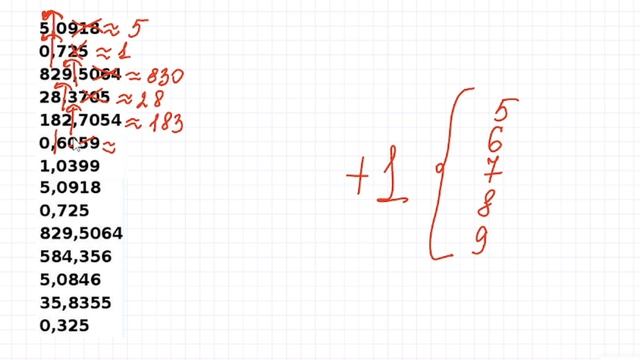 5,0918 ≈ 5
0,725 ≈ 1
829,5064 ≈ 830
28,3705 ≈ 28
182,7054 ≈ 183
0,6059 ≈
1,0399
5,0918
0,725
829,5064
584,356
5,0846
35,8355
0,325
+1 {
5
6
7
8
9